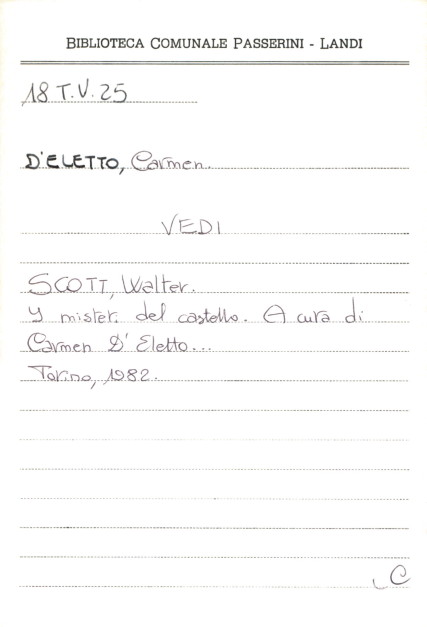 BIBLIOTECA COMUNALE PASSERINI - LANDI
18 T.V. 25
D'ELETTO, Carmen.
VEDI
SCOTT, Walter.
I misteri del castello. A cura di
Carmen D'Eletto...
Torino, 1982.
C